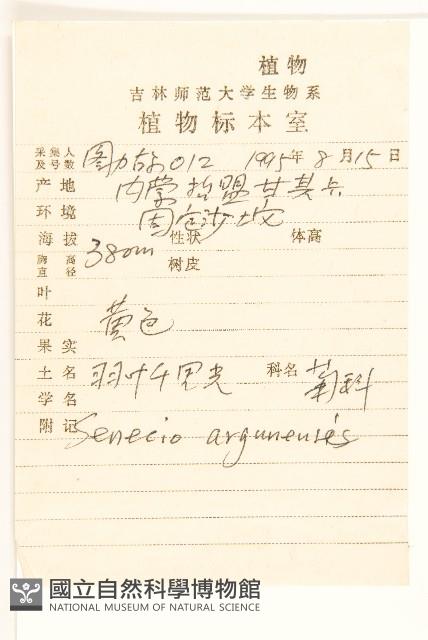 植物
吉林师范大学生物系
植物标本室
采集人及号数 图力古尔012 1995年8月15日
产地 内蒙 哲盟 甘其卡
环境 固定沙坡
海拔 380m 性状 体高
胸高直径 树皮
叶
花 黄色
果实
土名 羽叶千里光 科名 菊科
学名
附记 Senecio argunensis
國立自然科學博物館
NATIONAL MUSEUM OF NATURAL SCIENCE